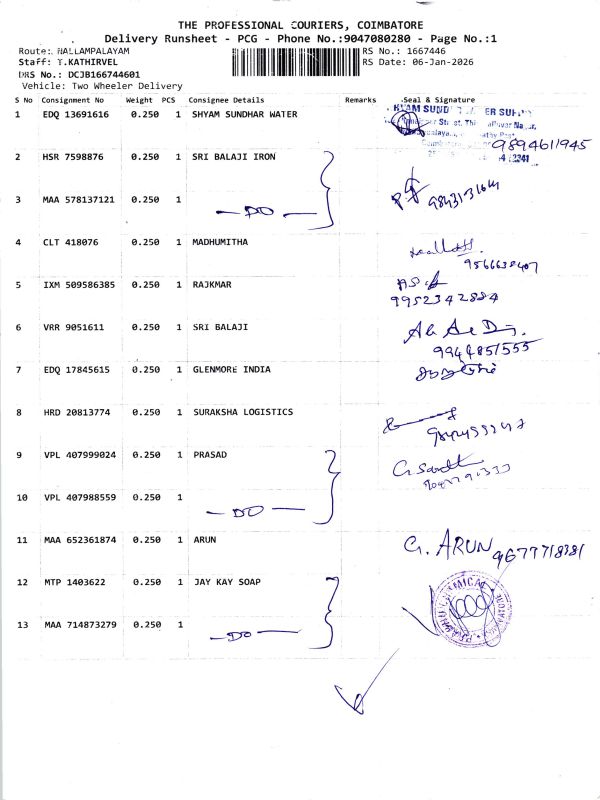 THE PROFESSIONAL COURIERS, COIMBATORE
Delivery Runsheet - PCG - Phone No.:9047080280 - Page No.:1
Route: NALLAMPALAYAM RS No.: 1667446
Staff: T.KATHIRVEL RS Date: 06-Jan-2026
DRS No.: DCJB166744601
Vehicle: Two Wheeler Delivery
S No Consignment No Weight PCS Consignee Details Remarks Seal & Signature
1 EDQ 13691616 0.250 1 SHYAM SUNDHAR WATER
9894611945
2 HSR 7598876 0.250 1 SRI BALAJI IRON
3 MAA 578137121 0.250 1 - DO -
4 CLT 418076 0.250 1 MADHUMITHA
5 IXM 509586385 0.250 1 RAJKMAR
9952342884
6 VRR 9051611 0.250 1 SRI BALAJI
9944851555
7 EDQ 17845615 0.250 1 GLENMORE INDIA
8 HRD 20813774 0.250 1 SURAKSHA LOGISTICS
9 VPL 407999024 0.250 1 PRASAD
10 VPL 407988559 0.250 1 - DO -
11 MAA 652361874 0.250 1 ARUN G. ARUN 9677718381
12 MTP 1403622 0.250 1 JAY KAY SOAP
13 MAA 714873279 0.250 1 - DO -